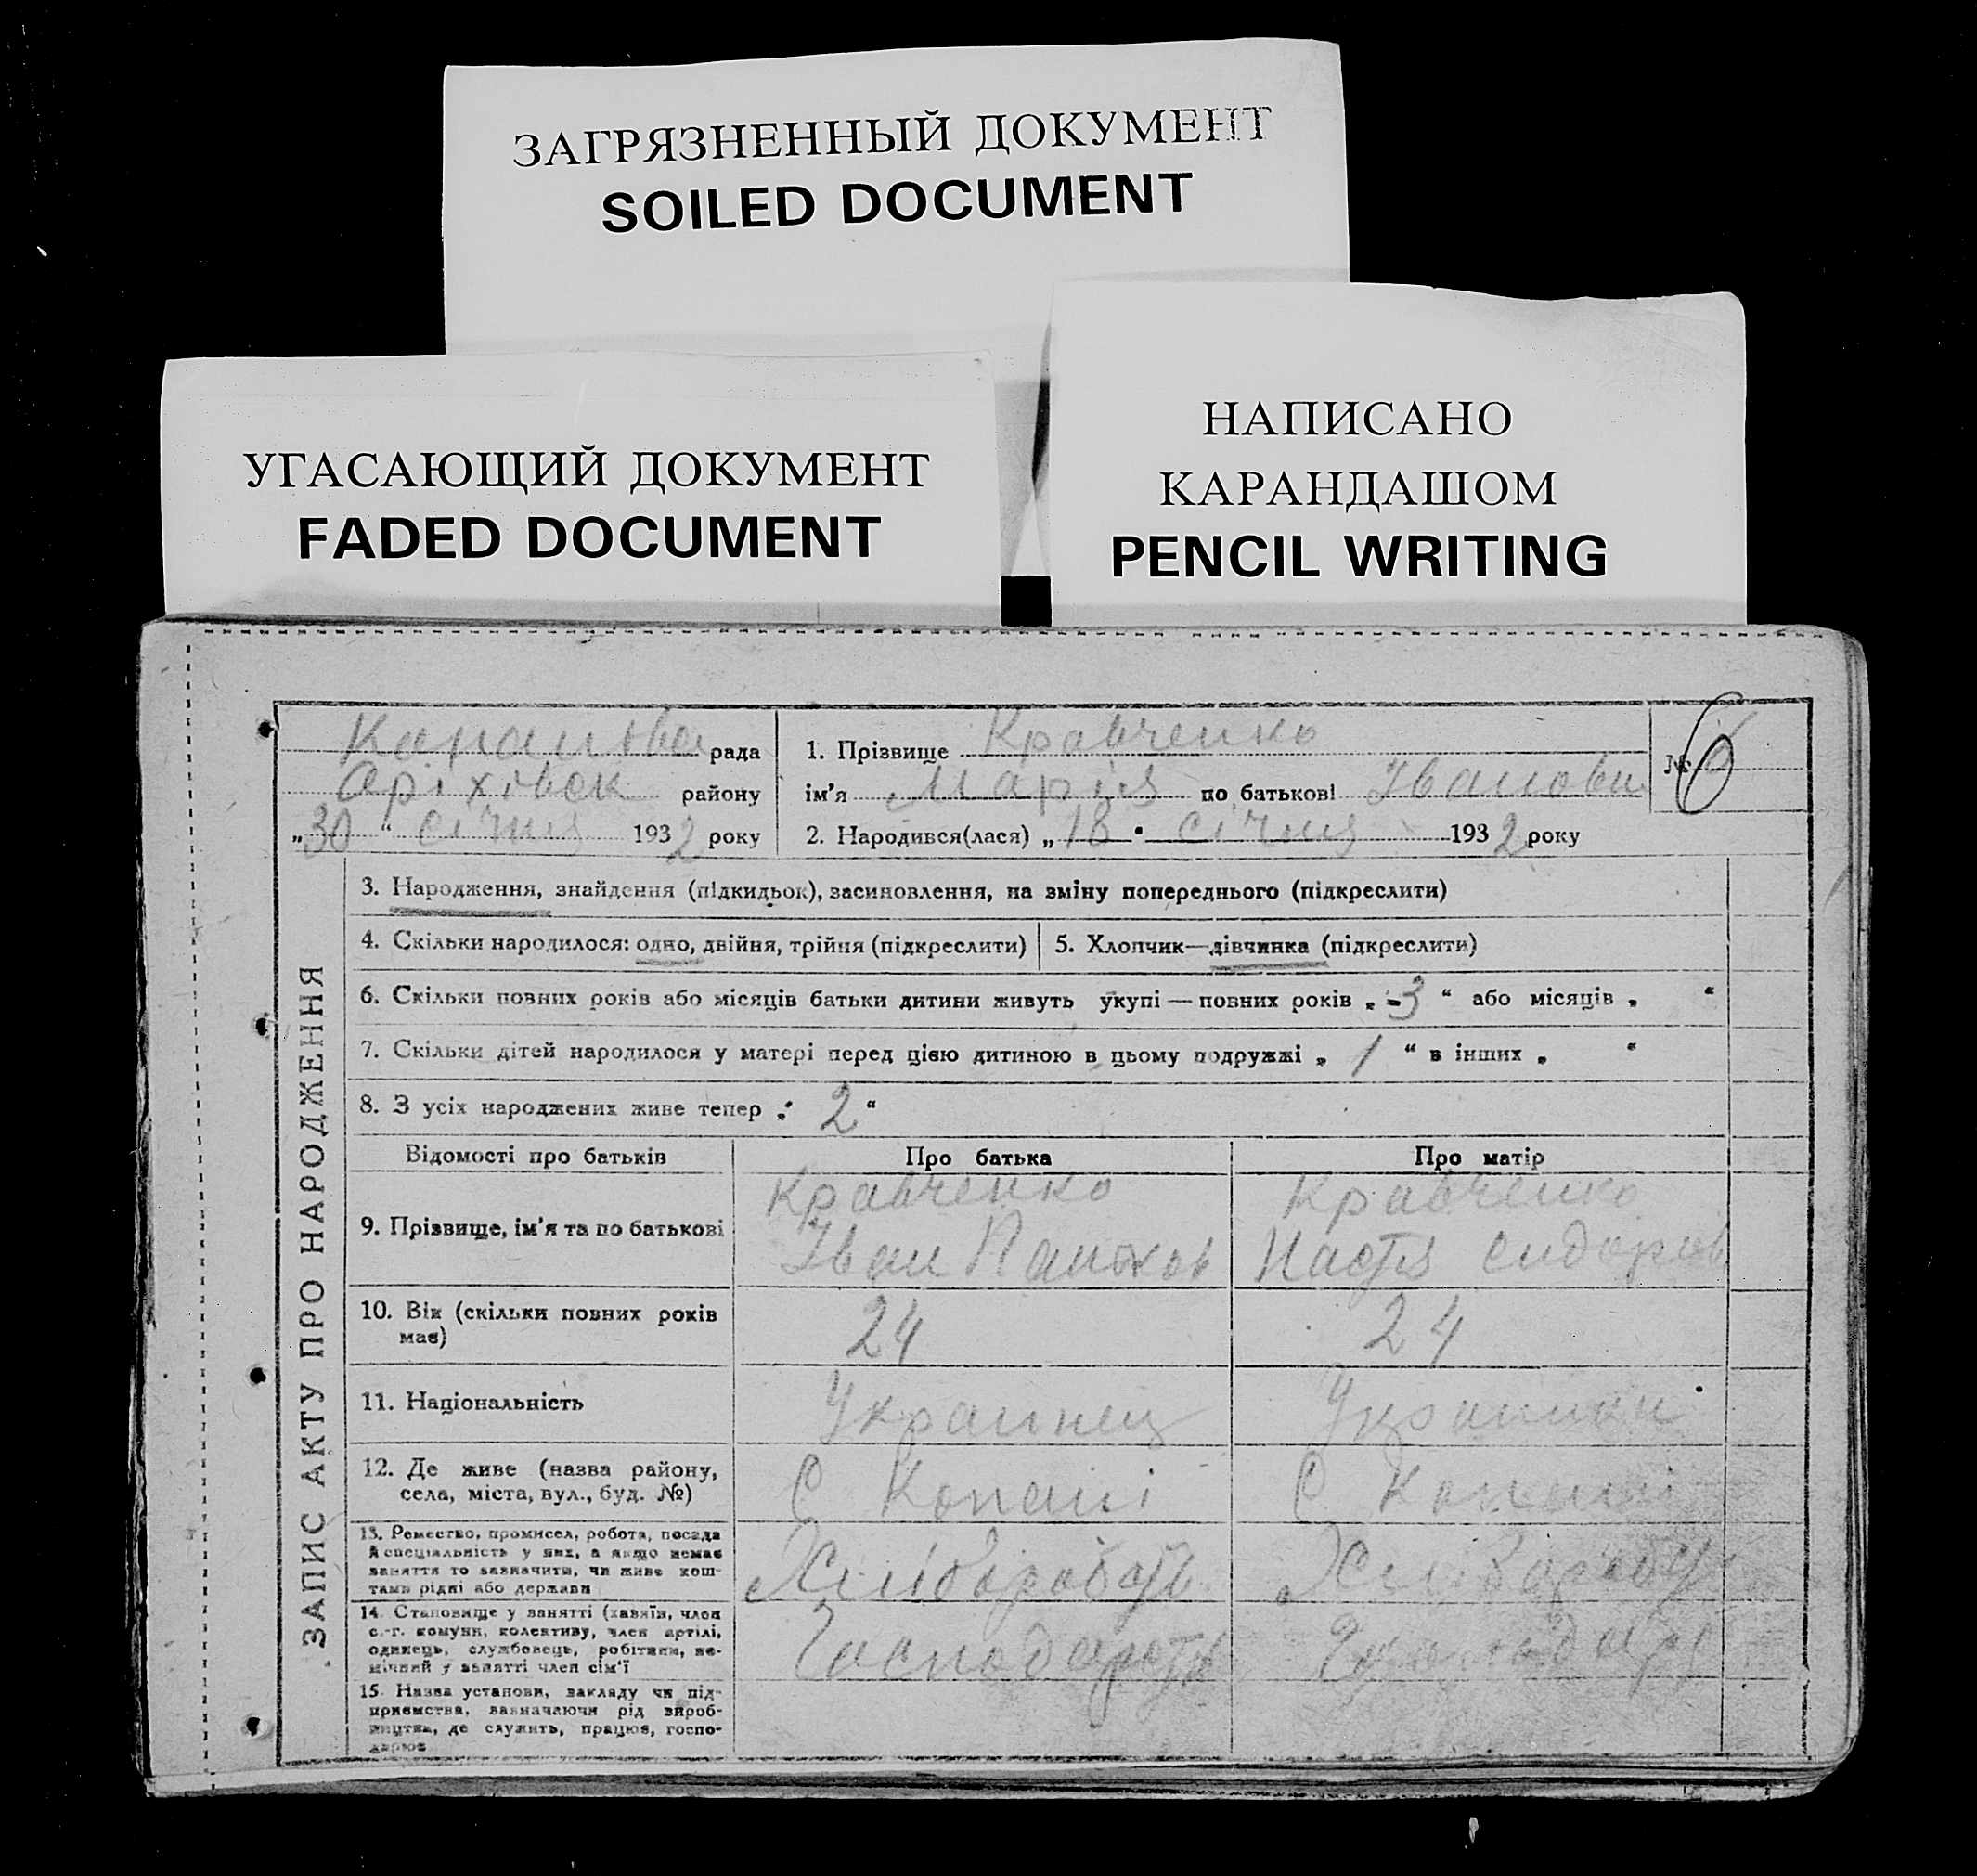 ЗАГРЯЗНЕННЫЙ ДОКУМЕНТ
SOILED DOCUMENT
УГАСАЮЩИЙ ДОКУМЕНТ
FADED DOCUMENT
НАПИСАНО
КАРАНДАШОМ
PENCIL WRITING
рада
Оріхівск району
„30“ січня 1932 року
1. Прізвище Кравченко
ім'я Марія по батькові Іванови
№ 6
2. Народився(лася) „18" січня 1932 року
ЗАПИС АКТУ ПРО НАРОДЖЕННЯ
3. Народження, знайдення (підкидьок), засиновлення, на зміну попереднього (підкреслити)
4. Скільки народилося: одно, двійня, трійня (підкреслити)
5. Хлопчик—дівчинка (підкреслити)
6. Скільки повних років або місяців батьки дитини живуть укупі — повних років „3“ або місяців „ “
7. Скільки дітей народилося у матері перед цією дитиною в цьому подружжі „1“ в інших „ “
8. З усіх народжених живе тепер „2“
Відомості про батьків Про батька Про матір
9. Прізвище, ім'я та по батькові
Кравченко
Іван
Кравченко
Настя Сидорів
10. Вік (скільки повних років
має)
24
24
11. Національність
Украинец
12. Де живе (назва району,
села, міста, вул., буд. №)
С Копані
С Копані
13. Ремество, промисел, робота, посада
й спеціяльність у них, а якщо немає
заняття то зазначити, чи живе кош-
тами рідні або держави
Хліборобств
14. Становище у занятті (хазяїн, член
с.-г. комуни, колективу, член артілі,
одинець, службовець, робітник, по-
мічний у занятті член сім'ї
Господарств
15. Назва установи, закладу чи під-
приємства, зазначаючи рід вироб-
ництва, де служить, працює, госпо-
дарює